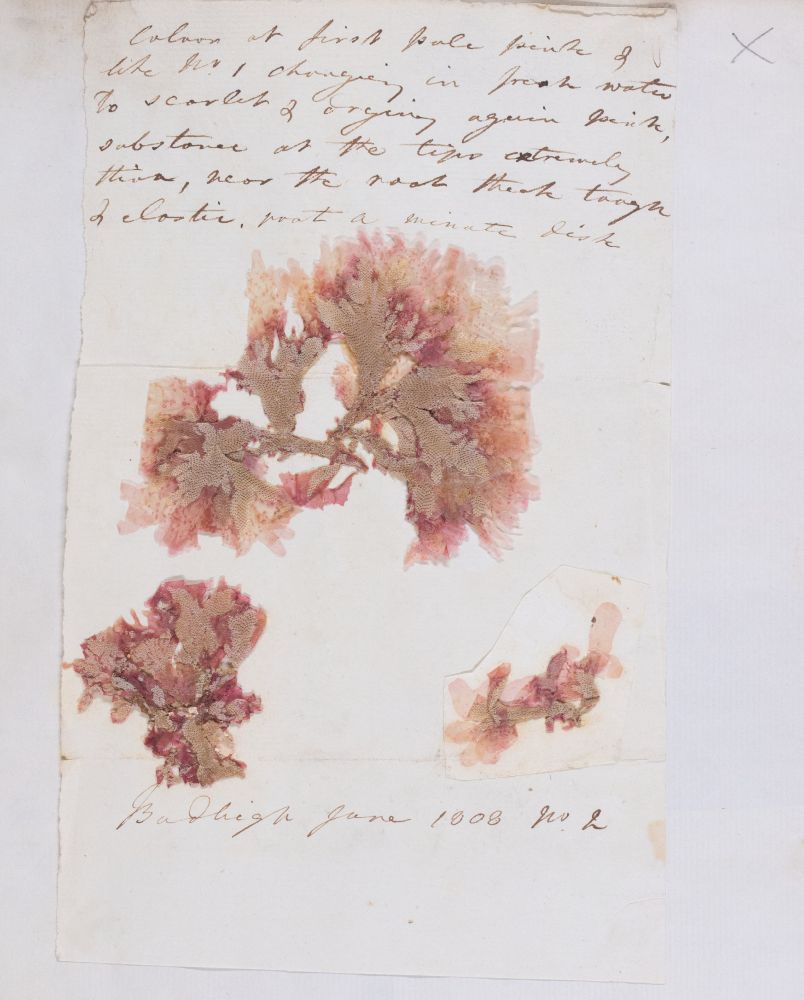 Colour at first pale pink &
like No. 1 changing in fresh water
to scarlet & orging again pink,
substance at the tips extremely
thin, near the root thick tough
& elastic. root a minute disk
Budleigh June 1808 No. 2